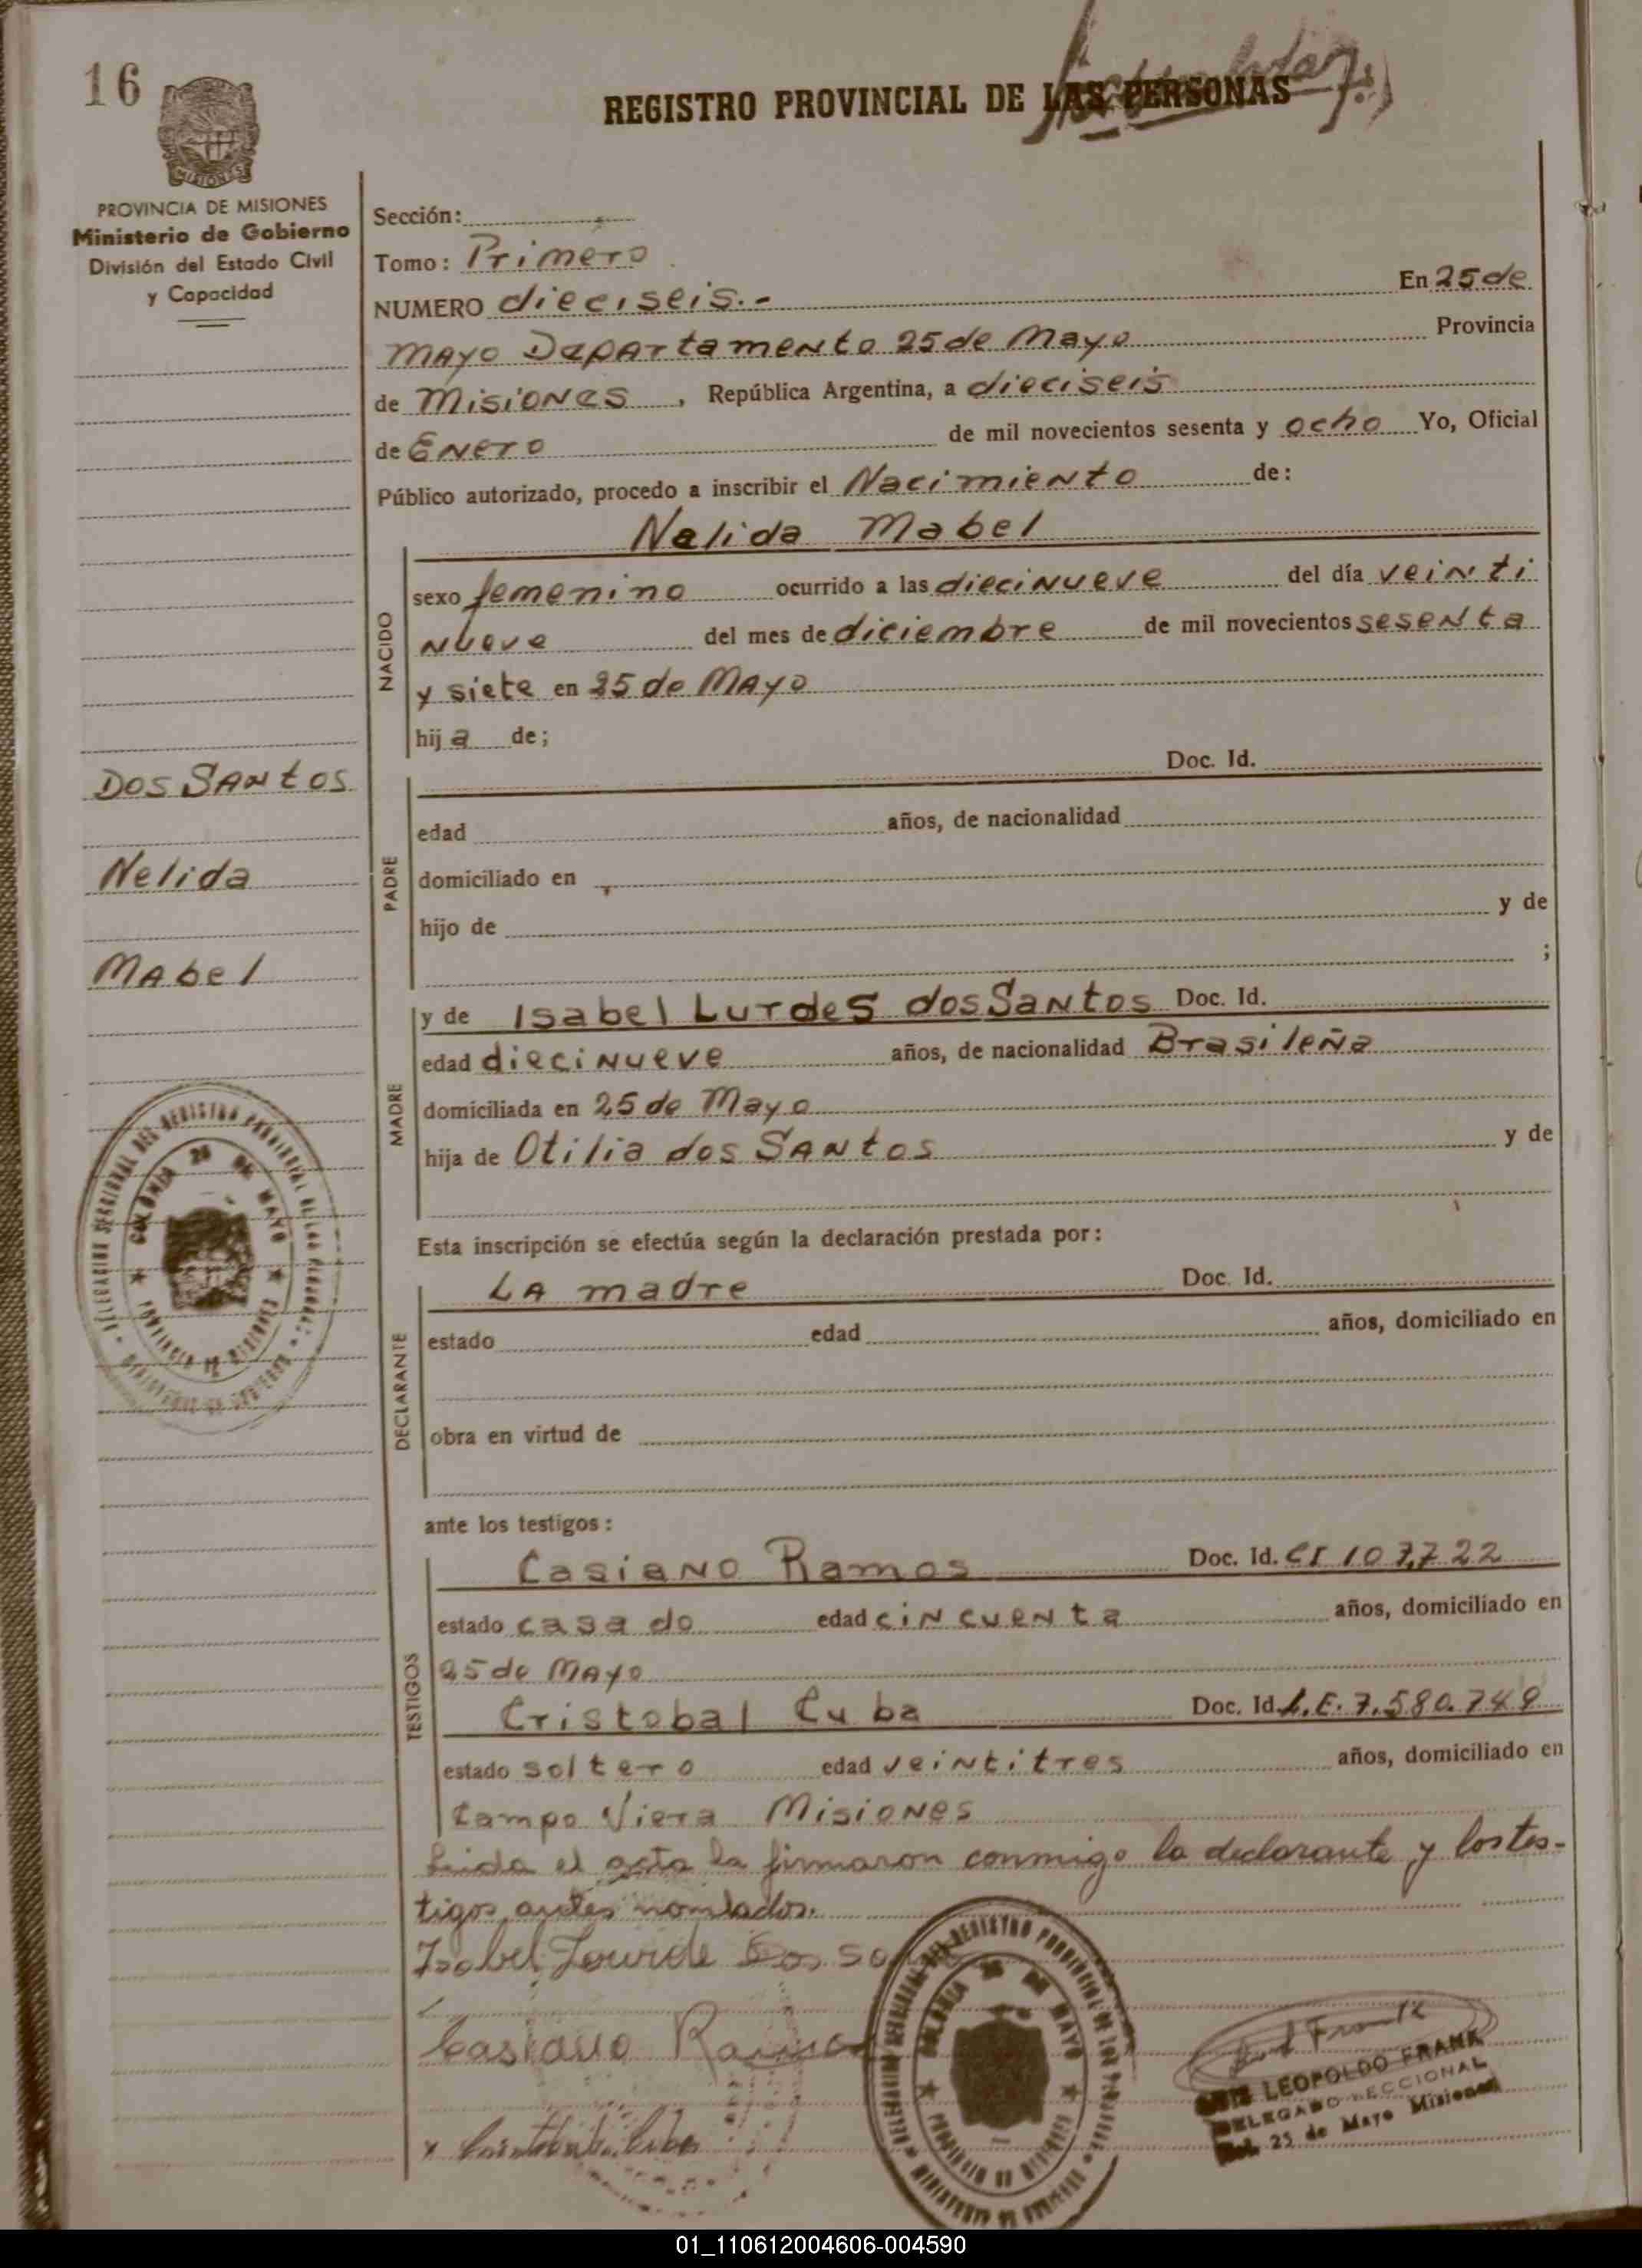 16
REGISTRO PROVINCIAL DE LAS PERSONAS
MISIONES
PROVINCIA DE MISIONES
Ministerio de Gobierno
División del Estado Civil
y Capacidad
Sección:
Tomo: Primero
NUMERO dieciseis.- En 25 de
Mayo Departamento 25 de Mayo Provincia
de Misiones, República Argentina, a dieciseis
de Enero de mil novecientos sesenta y ocho Yo, Oficial
Público autorizado, procedo a inscribir el Nacimiento de:
Nelida Mabel
NACIDO
sexo femenino ocurrido a las diecinueve del día veinti
nueve del mes de diciembre de mil novecientos sesenta
y siete en 25 de Mayo
hija de;
Dos Santos
Nelida
Mabel
PADRE
Doc. Id.
edad años, de nacionalidad
domiciliado en
hijo de y de
;
MADRE
y de Isabel Lurdes dos Santos Doc. Id.
edad diecinueve años, de nacionalidad Brasileña
domiciliada en 25 de Mayo
hija de Otilia dos Santos y de
DELEGACION SECCIONAL DEL REGISTRO PROVINCIAL DE LAS PERSONAS
COLONIA 25 DE MAYO
PROVINCIA DE MISIONES
Esta inscripción se efectúa según la declaración prestada por:
DECLARANTE
La madre Doc. Id.
estado edad años, domiciliado en
obra en virtud de
ante los testigos:
TESTIGOS
Casiano Ramos Doc. Id. CI 107.722
estado casado edad cincuenta años, domiciliado en
25 de Mayo
Cristobal Cuba Doc. Id. L.E. 7.580.749
estado soltero edad veintitres años, domiciliado en
Campo Viera Misiones
Leida el acta la firmaron conmigo la declarante y los tes-
tigos antes nombrados.
Isabel Lourde Dos Sa
Casiano Ramos
DELEGACION SECCIONAL DEL REGISTRO PROVINCIAL DE LAS PERSONAS
COLONIA 25 DE MAYO
PROVINCIA DE MISIONES
LUIS LEOPOLDO FRANK
DELEGADO SECCIONAL
Col. 25 de Mayo Misiones
01_110612004606-004590